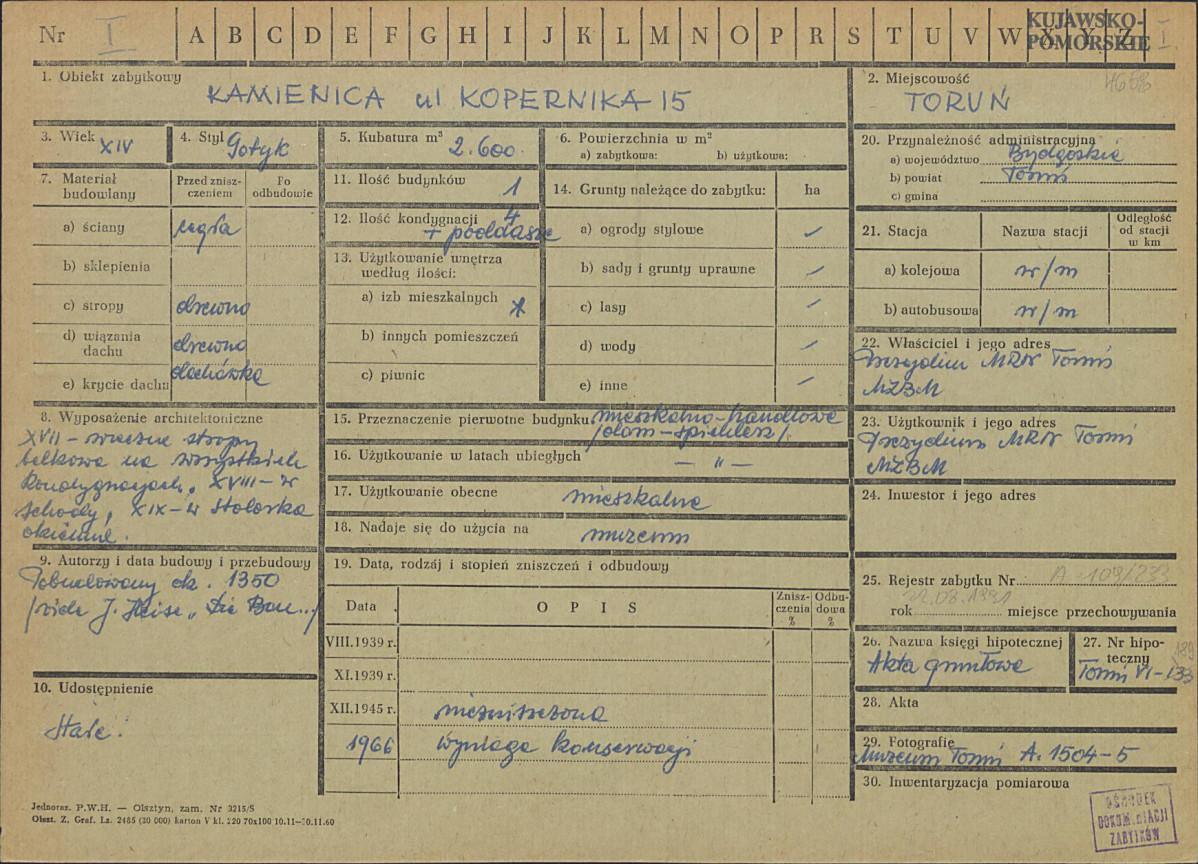 Nr I A B C D E F G H I J K L M N O P R S T U V W X Y Z I
KUJAWSKO-
POMORSKIE
1. Obiekt zabytkowy
KAMIENICA ul KOPERNIKA 15
2. Miejscowość
TORUŃ
3. Wiek XIV
4. Styl Gotyk
5. Kubatura m³ 2.600
6. Powierzchnia w m²
a) zabytkowa: b) użytkowa:
20. Przynależność administracyjna
a) województwo Bydgoskie
b) powiat Toruń
c) gmina
7. Materiał
budowlany
Przed znisz-
czeniem
Po
odbudowie
a) ściany cegła
b) sklepienia
c) stropy drewno
d) wiązania
dachu drewno
e) krycie dachu dachówka
11. Ilość budynków 1
12. Ilość kondygnacji 4
+ poddasze
13. Użytkowanie wnętrza
według ilości:
a) izb mieszkalnych
b) innych pomieszczeń
c) piwnic
14. Grunty należące do zabytku: ha
a) ogrody stylowe
b) sady i grunty uprawne
c) lasy
d) wody
e) inne
21. Stacja Nazwa stacji
Odległość
od stacji
w km
a) kolejowa w/m
b) autobusowa w/m
22. Właściciel i jego adres
Prezydium MRN Toruń
MZBM
8. Wyposażenie architektoniczne
XVII-wieczne stropy
belkowe na wszystkich
kondygnacjach, XVIII-w
schody, XIX-w stolarka
okienna.
15. Przeznaczenie pierwotne budynku mieszkalno-handlowe
/dom-spichlerz/
16. Użytkowanie w latach ubiegłych — " —
17. Użytkowanie obecne mieszkalne
18. Nadaje się do użycia na muzeum
23. Użytkownik i jego adres
Prezydium MRN Toruń
MZBM
24. Inwestor i jego adres
9. Autorzy i data budowy i przebudowy
Pobudowany ok. 1350
/vide J. Heise „Die Bau.../
10. Udostępnienie
Stałe.
19. Data, rodzaj i stopień zniszczeń i odbudowy
Data OPIS
Znisz-
czenia
%
Odbu-
dowa
%
VIII.1939 r.
XI.1939 r.
XII.1945 r. niezniszczona
1966 wymaga konserwacji
25. Rejestr zabytku Nr A-109/233
rok 22.03.1991 miejsce przechowywania
26. Nazwa księgi hipotecznej
Akta gruntowe
27. Nr hipo-
teczny
Toruń VI-133
28. Akta
29. Fotografie
Muzeum Toruń A. 1504-5
30. Inwentaryzacja pomiarowa
Jednoraz. P.W.H. — Olsztyn, zam. Nr 3215/S
Olszt. Z. Graf. Lz. 2485 (30 000) karton V kl. 220 70x100 10.11—10.11.60
OŚRODEK
DOKUMENTACJI
ZABYTKÓW